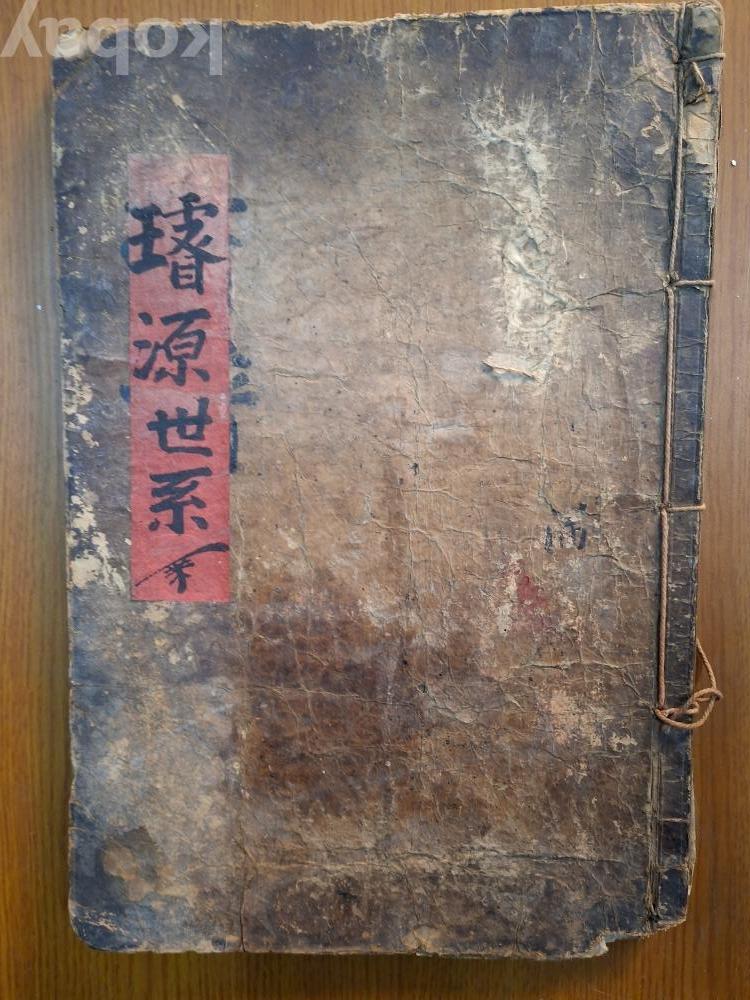 kobay
璿源世系